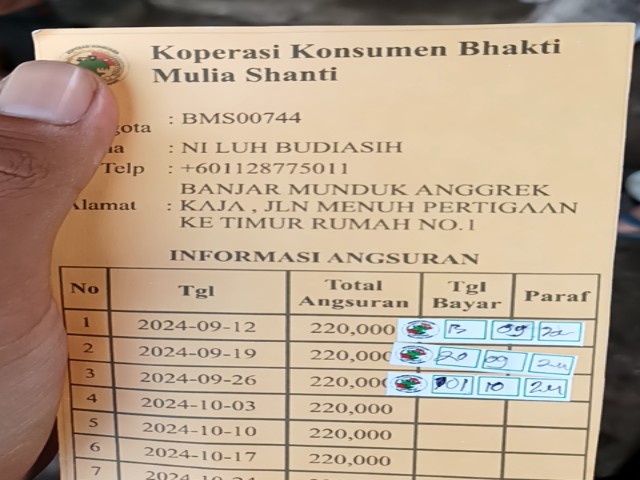 Koperasi Konsumen Bhakti
Mulia Shanti
: BMS00744
: NI LUH BUDIASIH
Telp : +601128775011
Alamat : BANJAR MUNDUK ANGGREK
KAJA , JLN MENUH PERTIGAAN
KE TIMUR RUMAH NO.1
INFORMASI ANGSURAN
No Tgl Total Angsuran Tgl Bayar Paraf
1 2024-09-12 220,000 09
2 2024-09-19 220,000 20 09 24
3 2024-09-26 220,000 01 10 24
4 2024-10-03 220,000
5 2024-10-10 220,000
6 2024-10-17 220,000
7